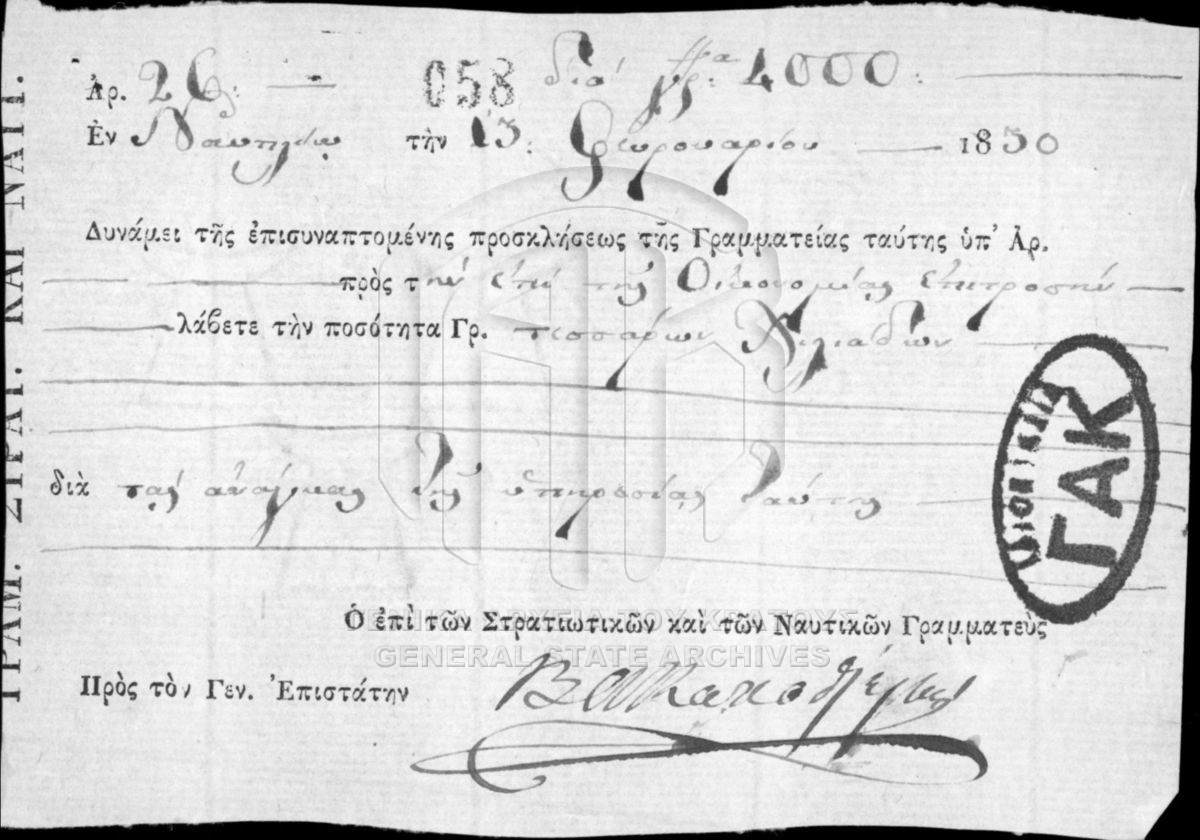 Ἀρ. 26: 058 διὰ γρ: 4000:
Ἐν Ναυπλίῳ τὴν 13: Φευρουαρίου 1830
Δυνάμει τῆς ἐπισυναπτομένης προσκλήσεως τῆς Γραμματείας ταύτης ὑπ' Ἀρ.
πρὸς τὴν ἐπὶ τῆς Οἰκονομίας Ἐπιτροπὴν
λάβετε τὴν ποσότητα Γρ. τεσσάρων Χιλιάδων
διὰ τὰς ἀνάγκας τῆς ὑπηρεσίας ταύτης
Ὁ ἐπὶ τῶν Στρατιωτικῶν καὶ τῶν Ναυτικῶν Γραμματεὺς
Πρὸς τὸν Γεν. Ἐπιστάτην
ΓΡΑΜ. ΣΤΡΑΤ. ΚΑΙ ΝΑΥΤ.
ΓΑΚ
ΓΕΝΙΚΑ ΑΡΧΕΙΑ ΤΟΥ ΚΡΑΤΟΥΣ
GENERAL STATE ARCHIVES